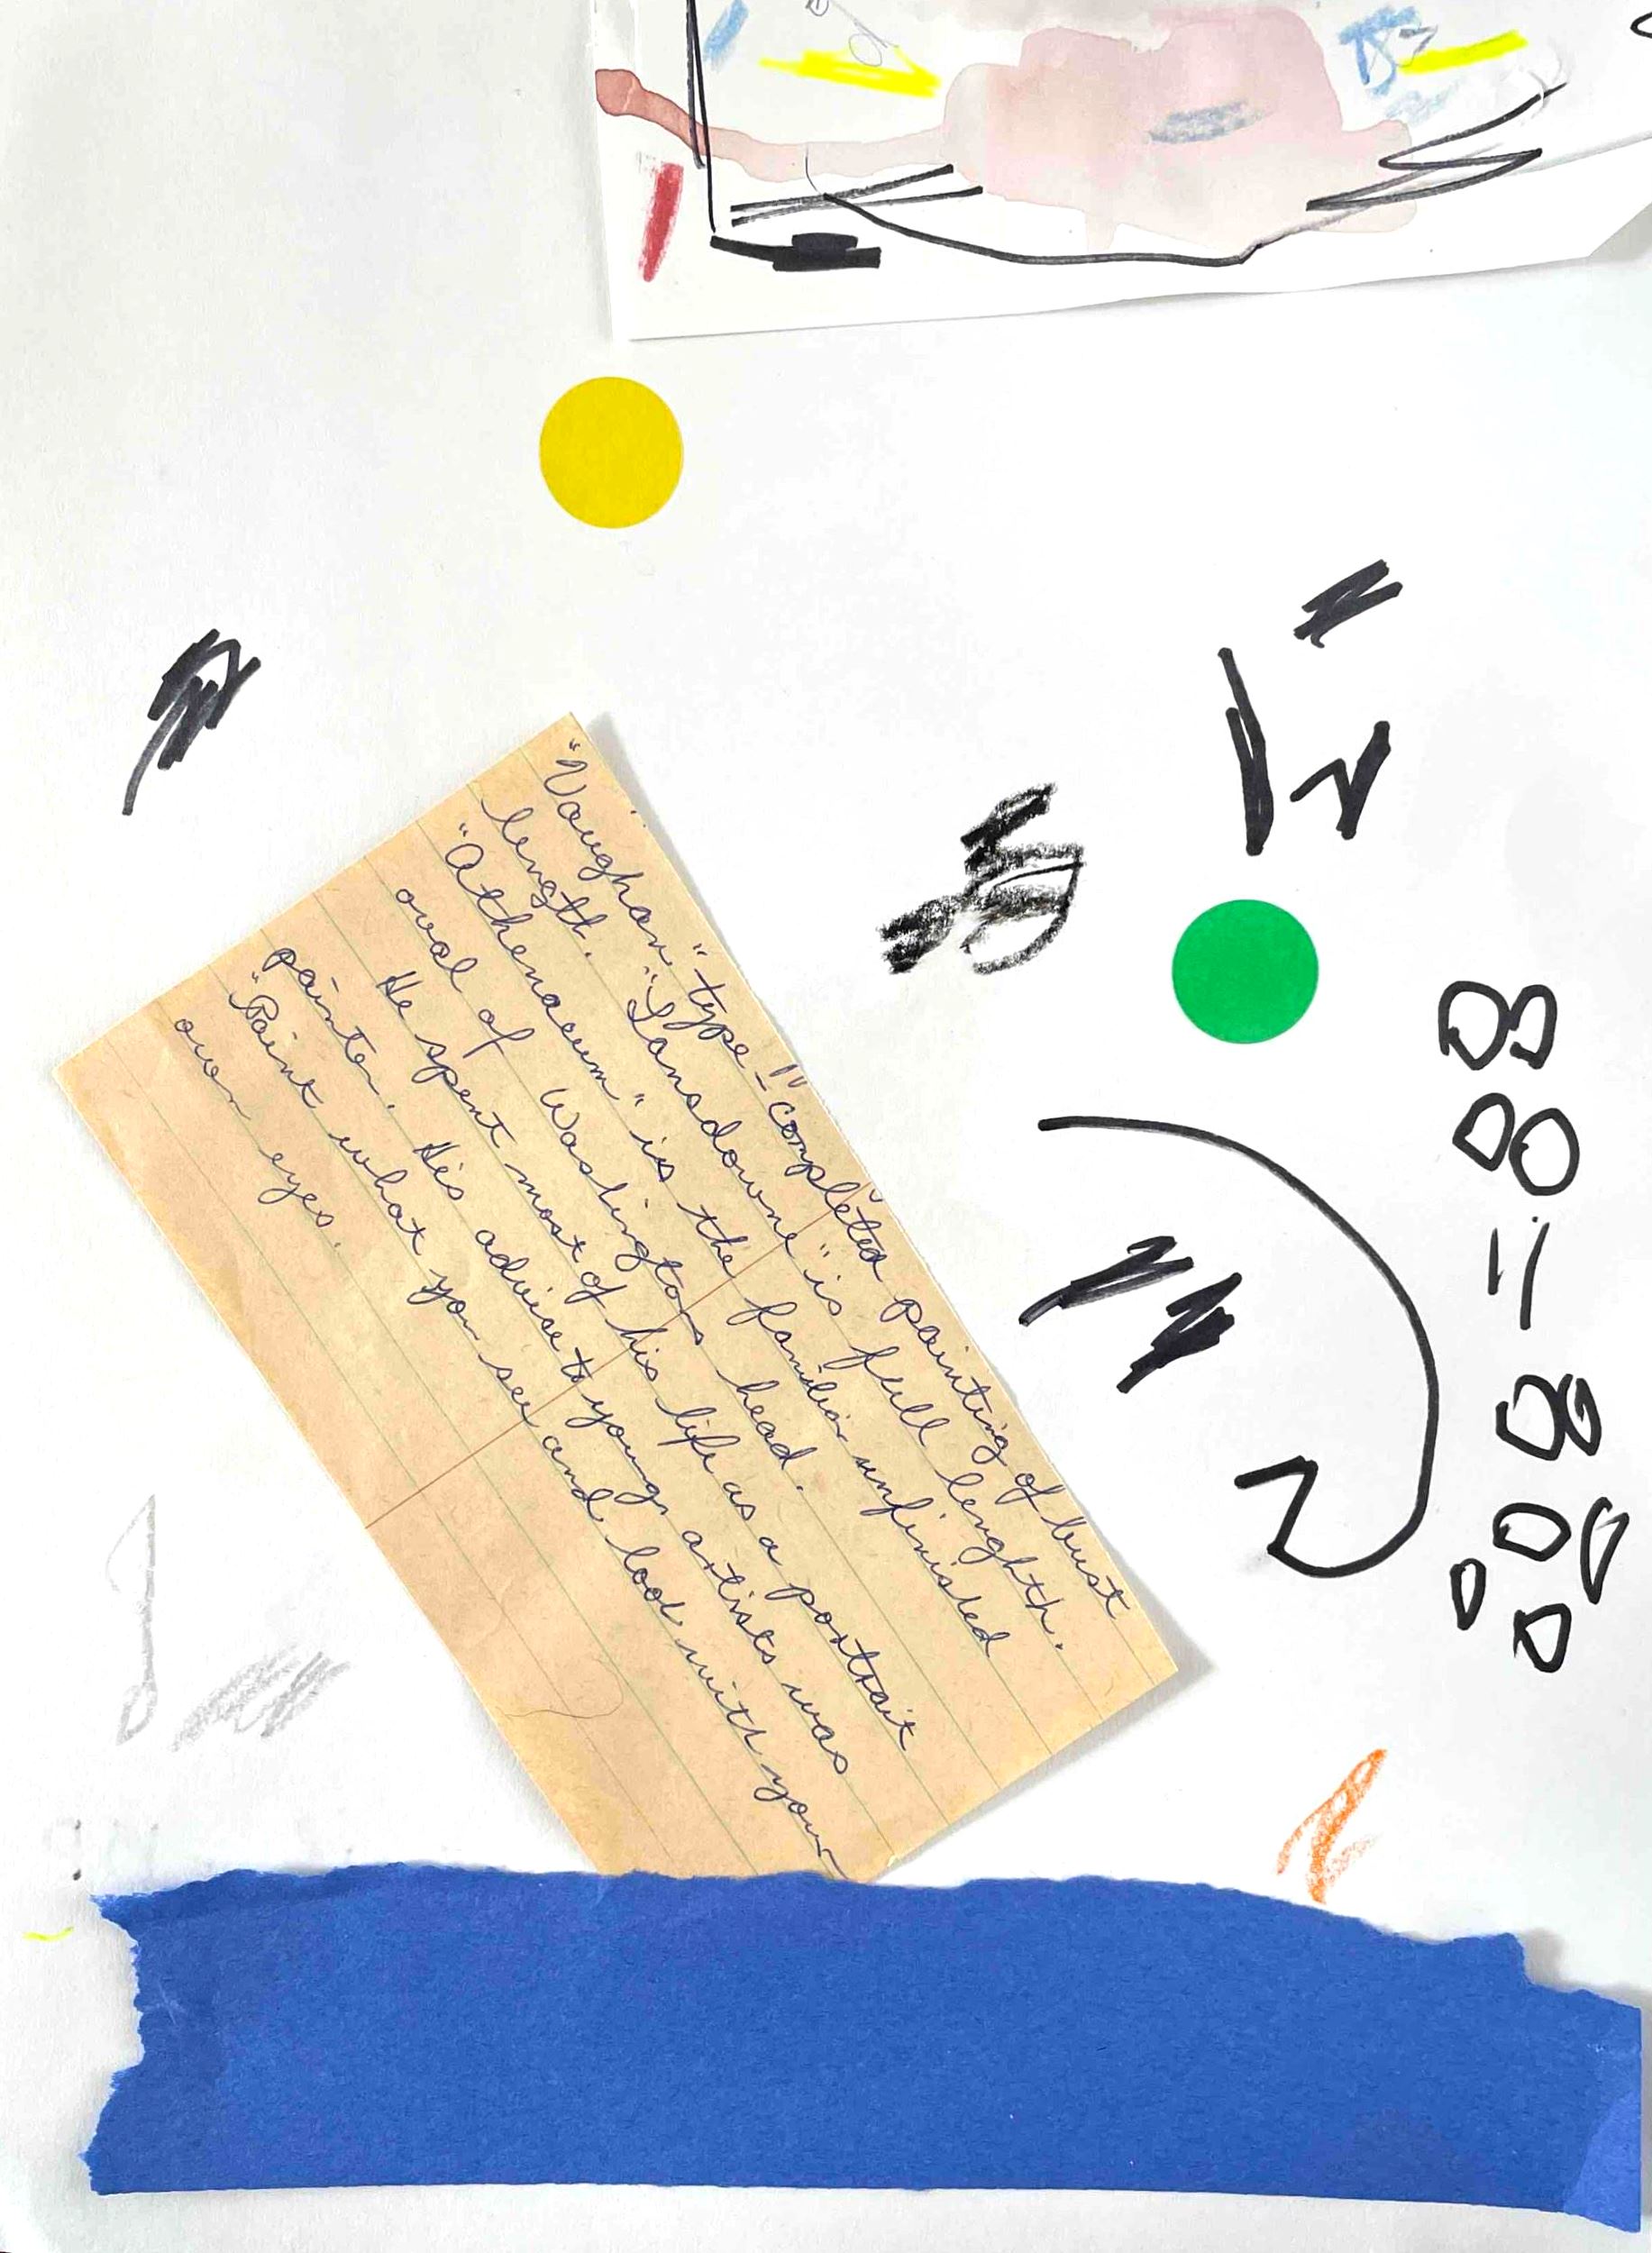 "Vaughan" type – completed painting of bust
length. "Lansdowne" is full lenghth.
"Athenaeum" is the familiar unfinished
oval of Washingtons head.
He spent most of his life as a portrait
painter. His advise to young artists was
"Paint what you see and look with your
own eyes.